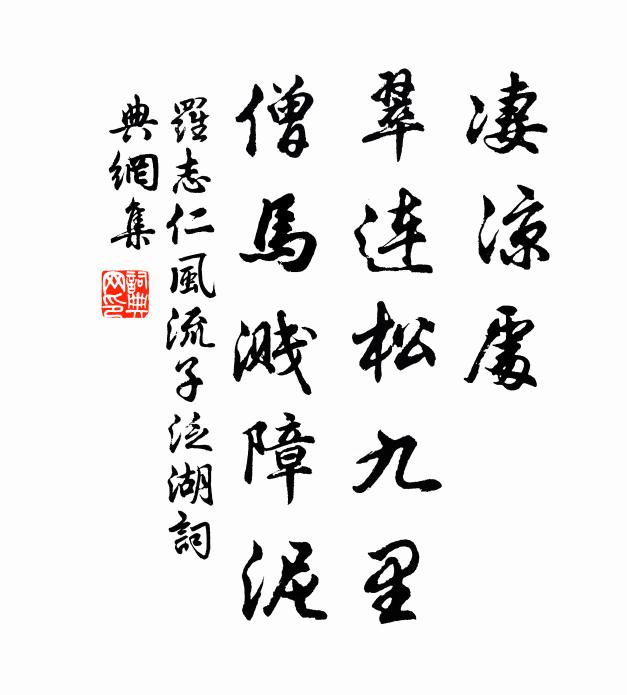 凄凉處
翠連松九里
僧馬濺障泥
羅志仁風流子泛湖詞
典網集
詞典網印